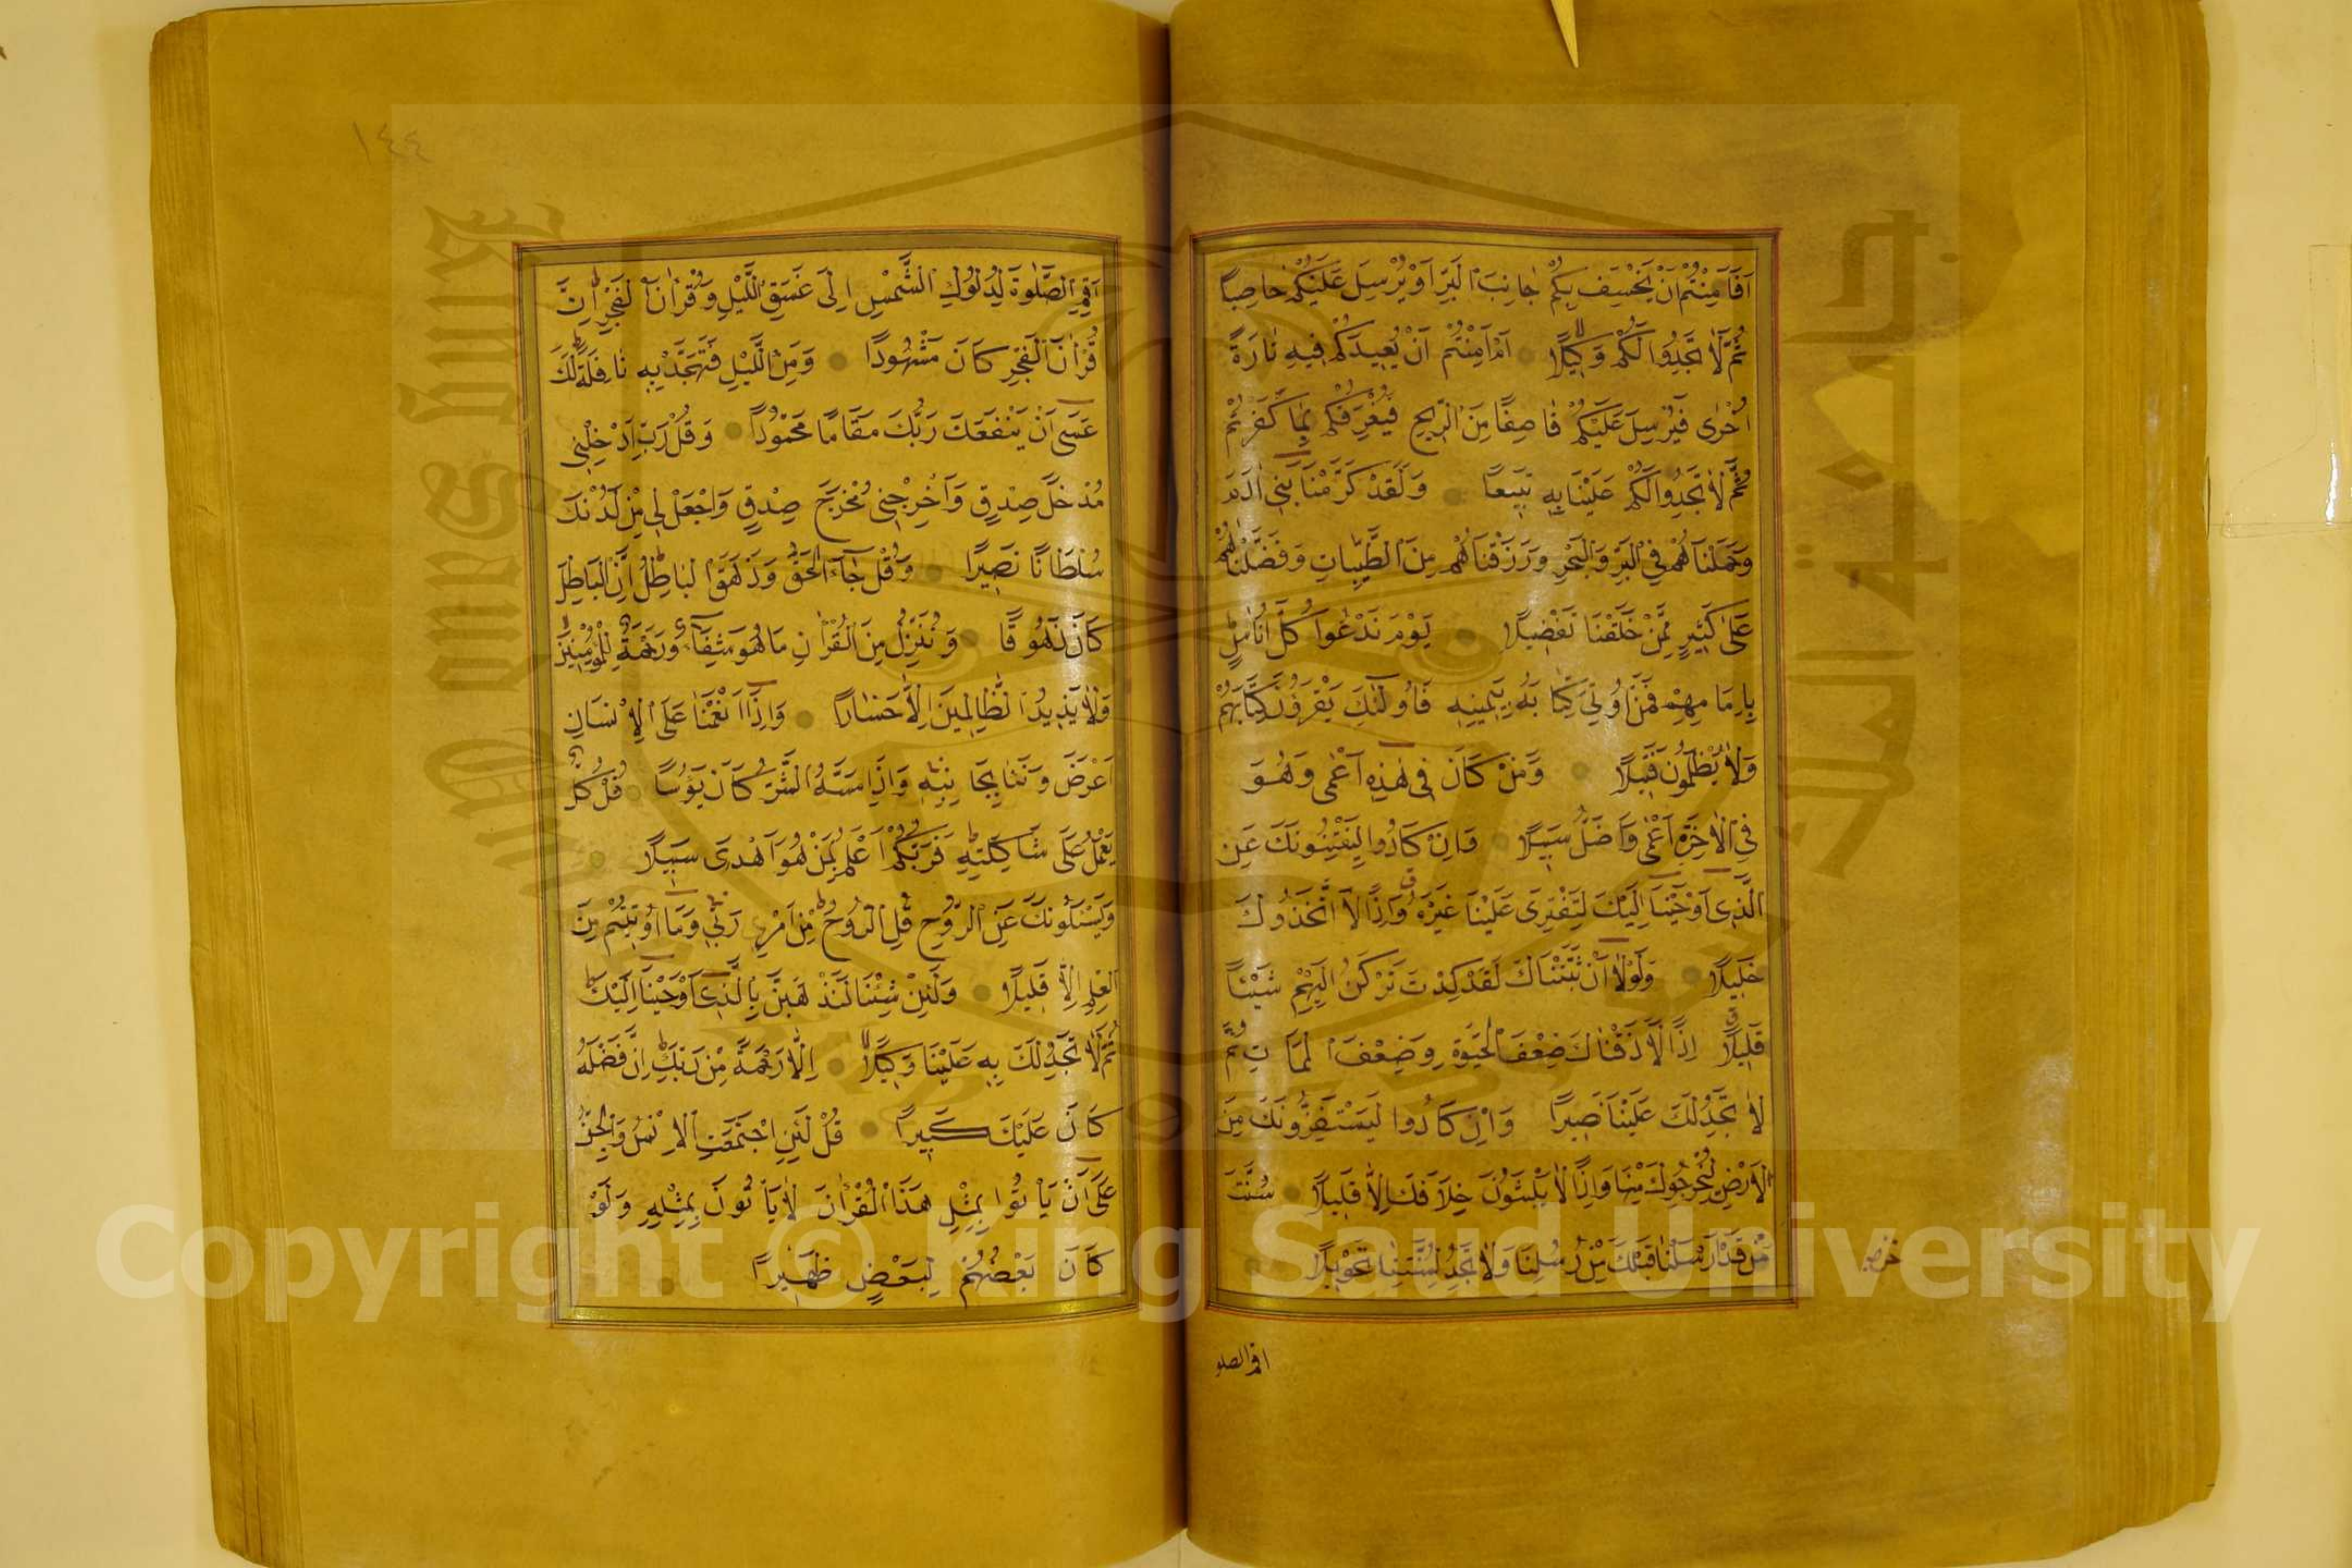 اَفَاَمِنْتُمْ اَنْ يَخْسِفَ بِكُمْ جَانِبَ الْبَرِّ اَوْ يُرْسِلَ عَلَيْكُمْ حَاصِبًا
ثُمَّ لَا تَجِدُوا لَكُمْ وَكِيلًا اَمْ اَمِنْتُمْ اَنْ يُعِيدَكُمْ فِيهِ تَارَةً
اُخْرٰى فَيُرْسِلَ عَلَيْكُمْ قَاصِفًا مِنَ الرِّيحِ فَيُغْرِقَكُمْ بِمَا كَفَرْتُمْ
ثُمَّ لَا تَجِدُوا لَكُمْ عَلَيْنَا بِهِ تَبِيعًا وَلَقَدْ كَرَّمْنَا بَنِي اٰدَمَ
وَحَمَلْنَاهُمْ فِي الْبَرِّ وَالْبَحْرِ وَرَزَقْنَاهُمْ مِنَ الطَّيِّبَاتِ وَفَضَّلْنَاهُمْ
عَلٰى كَثِيرٍ مِمَّنْ خَلَقْنَا تَفْضِيلًا يَوْمَ نَدْعُوا كُلَّ اُنَاسٍ
بِاِمَامِهِمْ فَمَنْ اُوتِيَ كِتَابَهُ بِيَمِينِهِ فَاُولٰئِكَ يَقْرَؤُنَ كِتَابَهُمْ
وَلَا يُظْلَمُونَ فَتِيلًا وَمَنْ كَانَ فِي هٰذِهِ اَعْمٰى وَهُوَ
فِي الْاٰخِرَةِ اَعْمٰى وَاَضَلُّ سَبِيلًا وَاِنْ كَادُوا لَيَفْتِنُونَكَ عَنِ
الَّذِي اَوْحَيْنَا اِلَيْكَ لِتَفْتَرِيَ عَلَيْنَا غَيْرَهُ وَاِذًا لَاتَّخَذُوكَ
خَلِيلًا وَلَوْلَا اَنْ ثَبَّتْنَاكَ لَقَدْ كِدْتَ تَرْكَنُ اِلَيْهِمْ شَيْئًا
قَلِيلًا اِذًا لَاَذَقْنَاكَ ضِعْفَ الْحَيٰوةِ وَضِعْفَ الْمَمَاتِ ثُمَّ
لَا تَجِدُ لَكَ عَلَيْنَا نَصِيرًا وَاِنْ كَادُوا لَيَسْتَفِزُّونَكَ مِنَ
الْاَرْضِ لِيُخْرِجُوكَ مِنْهَا وَاِذًا لَا يَلْبَثُونَ خِلَافَكَ اِلَّا قَلِيلًا سُنَّتَ
مَنْ قَدْ اَرْسَلْنَا قَبْلَكَ مِنْ رُسُلِنَا وَلَا تَجِدُ لِسُنَّتِنَا تَحْوِيلًا
اقم الصلو
١٤٤
اَقِمِ الصَّلٰوةَ لِدُلُوكِ الشَّمْسِ اِلٰى غَسَقِ اللَّيْلِ وَقُرْاٰنَ الْفَجْرِ اِنَّ
قُرْاٰنَ الْفَجْرِ كَانَ مَشْهُودًا وَمِنَ اللَّيْلِ فَتَهَجَّدْ بِهِ نَافِلَةً لَكَ
عَسٰى اَنْ يَنْفَعَكَ رَبُّكَ مَقَامًا مَحْمُودًا وَقُلْ رَبِّ اَدْخِلْنِي
مُدْخَلَ صِدْقٍ وَاَخْرِجْنِي مُخْرَجَ صِدْقٍ وَاجْعَلْ لِي مِنْ لَدُنْكَ
سُلْطَانًا نَصِيرًا وَقُلْ جَاءَ الْحَقُّ وَزَهَقَ الْبَاطِلُ اِنَّ الْبَاطِلَ
كَانَ زَهُوقًا وَنُنَزِّلُ مِنَ الْقُرْاٰنِ مَا هُوَ شِفَاءٌ وَرَحْمَةٌ لِلْمُؤْمِنِينَ
وَلَا يَزِيدُ الظَّالِمِينَ اِلَّا خَسَارًا وَاِذَا اَنْعَمْنَا عَلَى الْاِنْسَانِ
اَعْرَضَ وَنَئَا بِجَانِبِهِ وَاِذَا مَسَّهُ الشَّرُّ كَانَ يَؤُسًا قُلْ كُلٌّ
يَعْمَلُ عَلٰى شَاكِلَتِهِ فَرَبُّكُمْ اَعْلَمُ بِمَنْ هُوَ اَهْدٰى سَبِيلًا
وَيَسْئَلُونَكَ عَنِ الرُّوحِ قُلِ الرُّوحُ مِنْ اَمْرِ رَبِّي وَمَا اُوتِيتُمْ مِنَ
الْعِلْمِ اِلَّا قَلِيلًا وَلَئِنْ شِئْنَا لَنَذْهَبَنَّ بِالَّذِي اَوْحَيْنَا اِلَيْكَ
ثُمَّ لَا تَجِدُ لَكَ بِهِ عَلَيْنَا وَكِيلًا اِلَّا رَحْمَةً مِنْ رَبِّكَ اِنَّ فَضْلَهُ
كَانَ عَلَيْكَ كَبِيرًا قُلْ لَئِنِ اجْتَمَعَتِ الْاِنْسُ وَالْجِنُّ
عَلٰى اَنْ يَأْتُوا بِمِثْلِ هٰذَا الْقُرْاٰنِ لَا يَأْتُونَ بِمِثْلِهِ وَلَوْ
كَانَ بَعْضُهُمْ لِبَعْضٍ ظَهِيرًا
Copyright © King Saud University